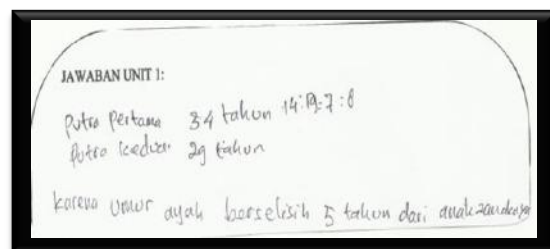 JAWABAN UNIT 1:
Putra Pertama 34 tahun 14:19=7:8
Putra kedua 29 tahun
karena umur ayah berselisih 5 tahun dari anak